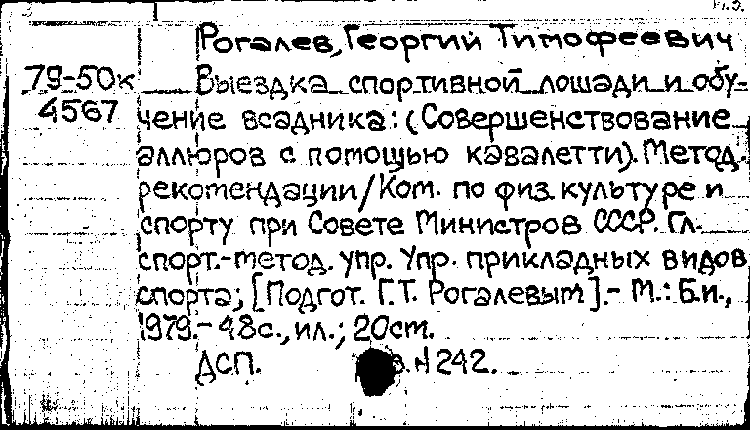 Рогалев, Георгий Тимофеевич
79-50к
4567
Выездка спортивной лошади и обу-
чение всадника: (Совершенствование
аллюров с помощью кавалетти). Метод.
рекомендации/Ком. по физ. культуре и
спорту при Совете Министров СССР. Гл.
спорт.-метод. упр. Упр. прикладных видов
спорта; [Подгот. Г.Т. Рогалевым].- М.: Б.и.,
1979.- 48с., ил.; 20см.
ДСП. 242.